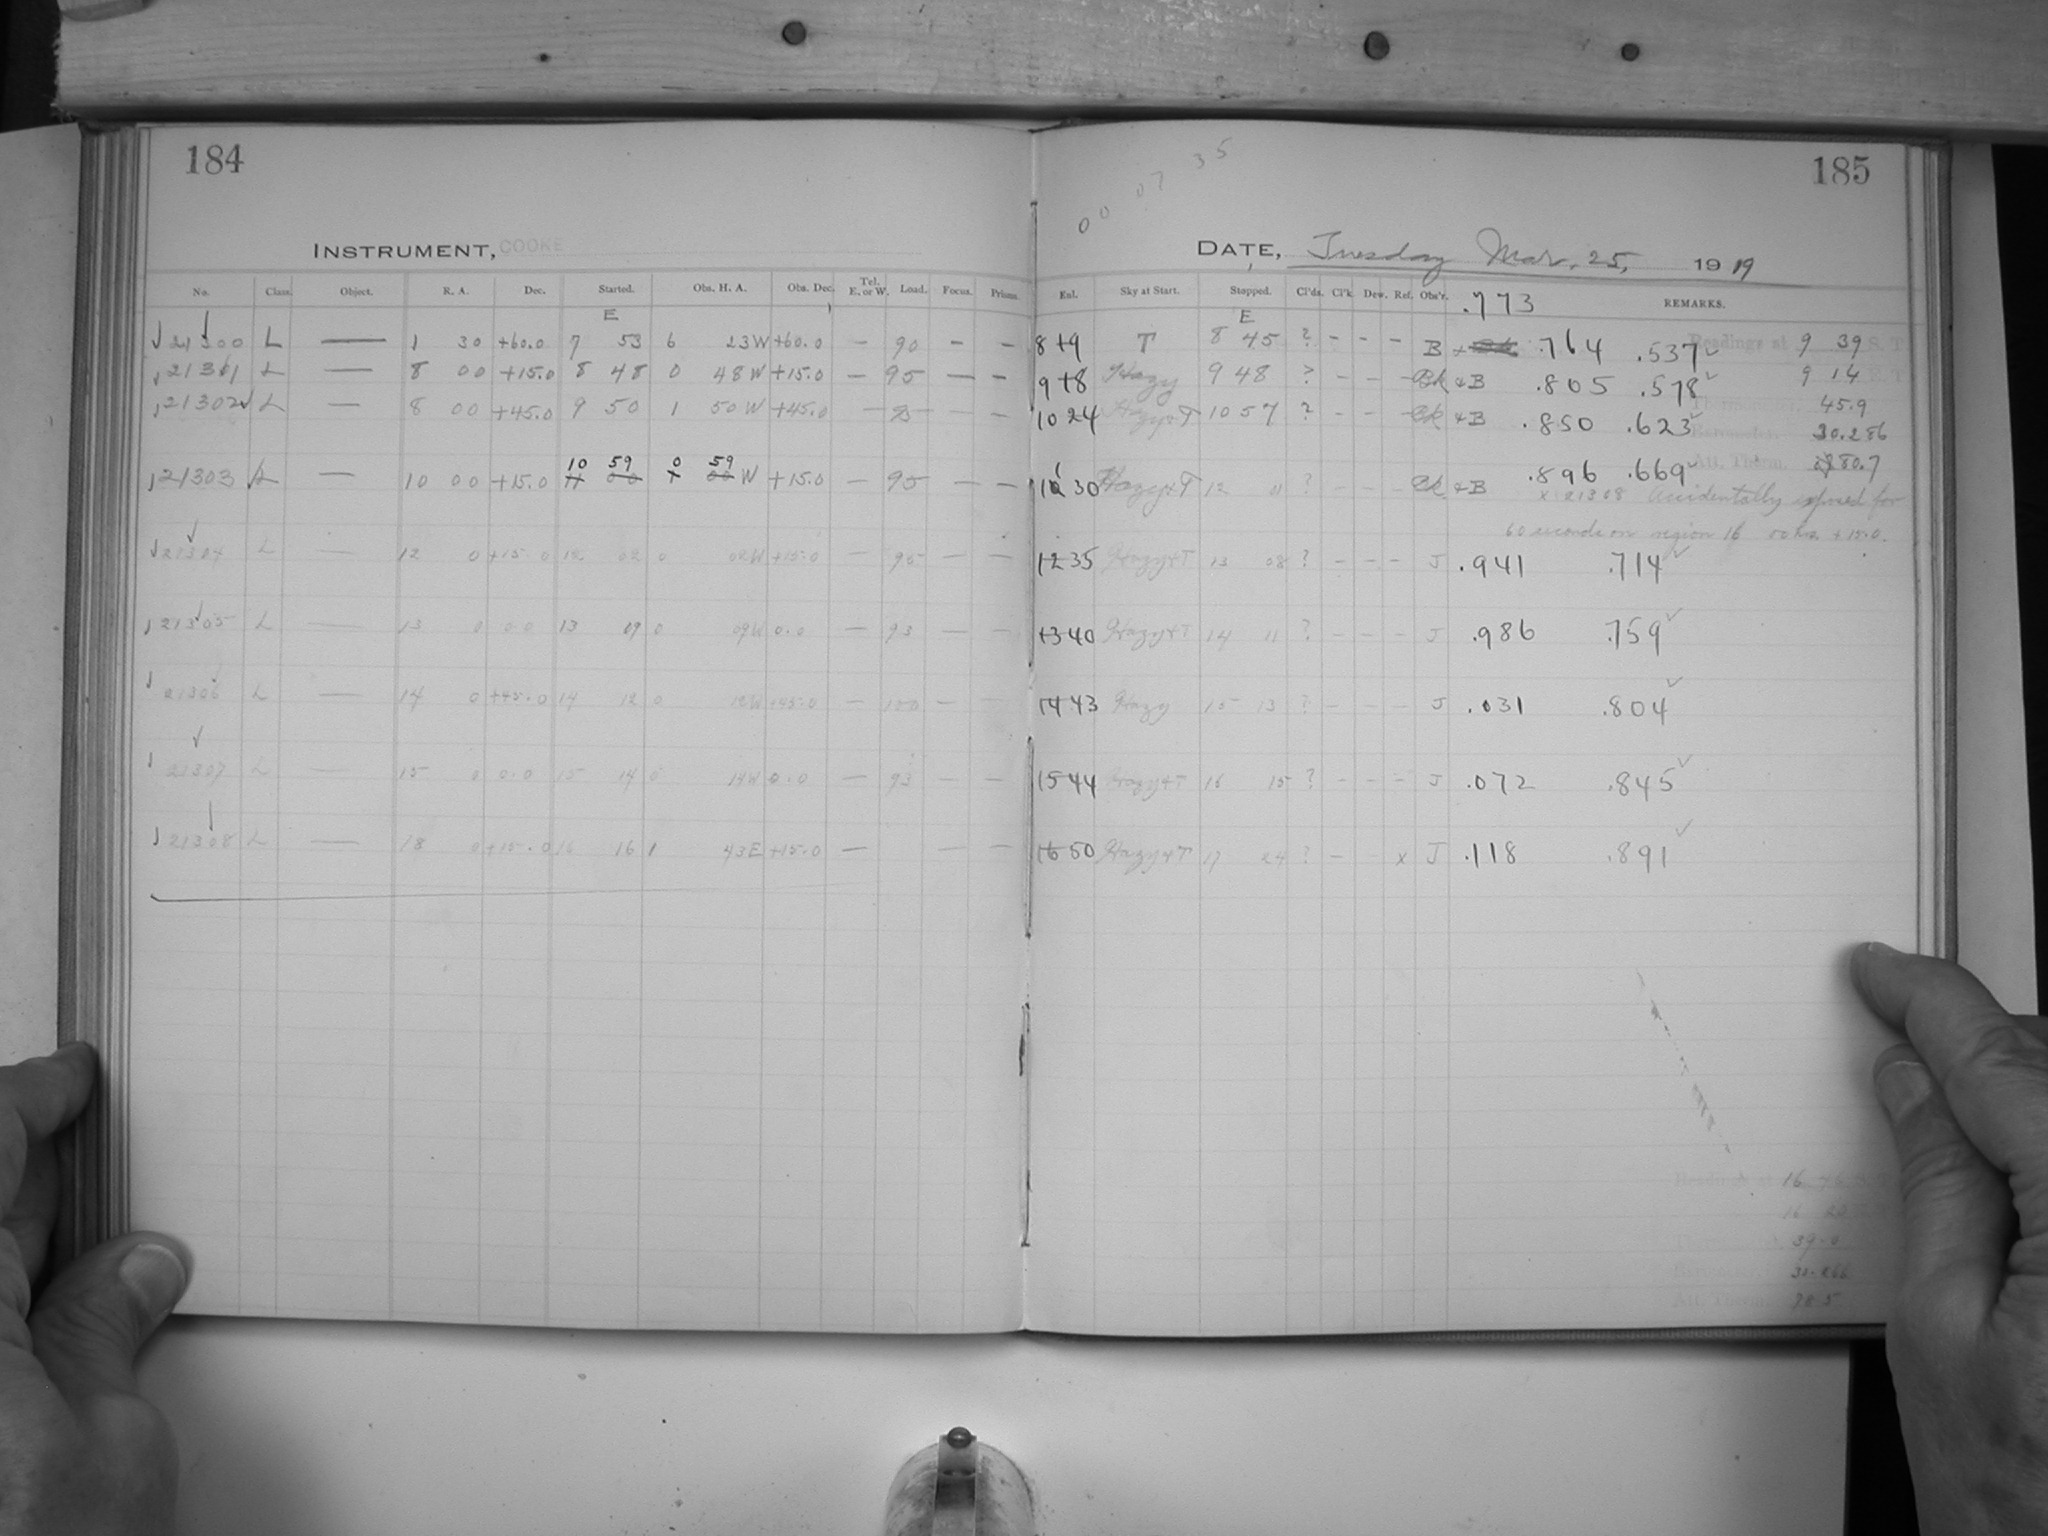 184
INSTRUMENT, COOKE
No. Class. Object. R. A. Dec. Started. Obs. H. A. Obs. Dec. Tel. E. or W. Load. Focus. Prisms.
E
21300 L — 1 30 +60.0 7 53 6 23W +60.0 — 90 — —
21301 L — 8 00 +15.0 8 48 0 48W +15.0 — 95 — —
21302 L — 8 00 +45.0 9 50 1 50W +45.0 — — —
10 59 0 59
21303 L — 10 00 +15.0 11 00 1 00 W +15.0 — 95 — —
21304 L — 12 0 +15.0 12 02 0 02W +15.0 — 95 — —
21305 L — 13 0 0.0 13 09 0 09W 0.0 — 93 — —
21306 L — 14 0 +45.0 14 12 0 12W +45.0 — 100 — —
21307 L — 15 0 0.0 15 14 0 14W 0.0 — 93 — —
21308 L — 18 0 +15.0 16 16 1 43E +15.0 — — —
00 07 35
185
DATE, Tuesday Mar. 25, 1919
Enl. Sky at Start. Stopped. Cl'ds. Cl'k. Dew. Ref. Obs'r. .773 REMARKS.
E
8 +9 T 8 45 ? - - - B + .764 .537 Readings at 9 39 S. T.
9 +8 Hazy 9 48 ? - - - Ck + B .805 .578 9 14
45.9
10 24 Hazy+T 10 57 ? - - - Ck + B .850 .623 30.286
Att. Therm. 80.7
30 Hazy+T 12 01 ? - - - Ck + B .896 .669
x 21308 Accidentally exposed for
60 seconds on region 16 00 hrs +15.0.
12 35 Hazy+T 13 08 ? - - - J .941 .714
13 40 Hazy+T 14 11 ? - - - J .986 .759
14 43 Hazy 15 13 ? - - - J .031 .804
15 44 Hazy+T 16 15 ? - - - J .072 .845
16 50 Hazy+T 17 24 ? - - x J .118 .891
Readings at 16 46
16 22
39.0
30.266
Att. Therm. 78.5